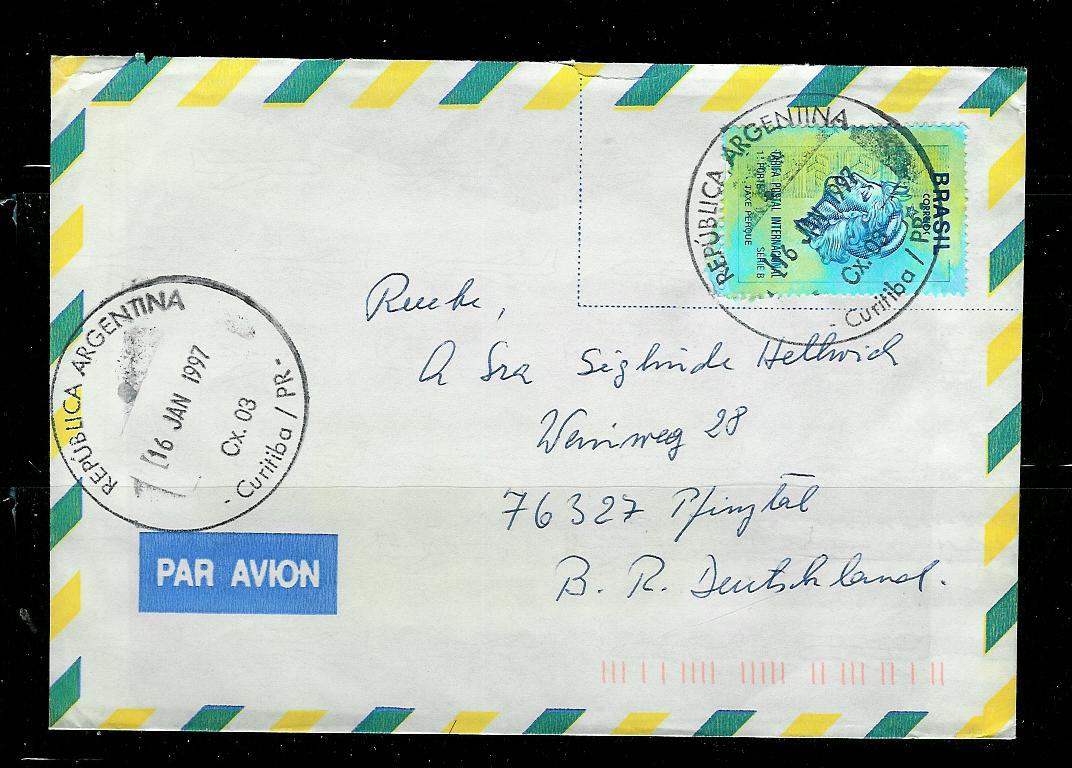 REPÚBLICA ARGENTINA
16 JAN 1997
Cx. 03
- Curitiba / PR -
BRASIL
CORREIOS
TARIFA POSTAL INTERNACIONAL
1º PORTE SÉRIE B
TAXE PERÇUE
A Sra Siglinde Hellwich
76327 Pfinztal
B. R. Deutschland.
REPÚBLICA ARGENTINA
16 JAN 1997
Cx. 03
- Curitiba / PR -
PAR AVION